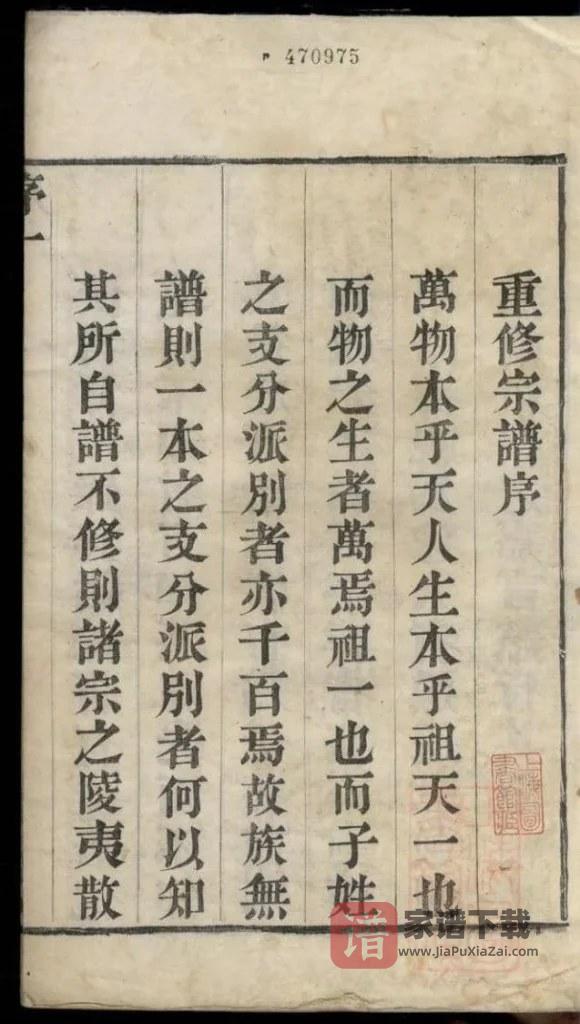 470975
重修宗譜序
萬物本乎天人生本乎祖天一也
而物之生者萬焉祖一也而子姓
之支分派別者亦千百焉故族無
譜則一本之支分派別者何以知
其所自譜不修則諸宗之陵夷散
序一
上海圖書館藏
谱 家谱下载
www.JiaPuXiaZai.com